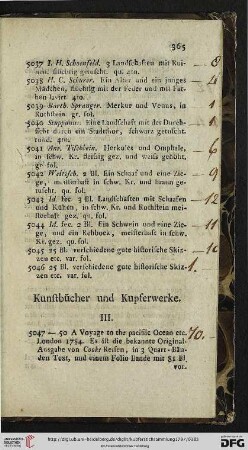 365
5037 I. H. Schoenfeld. 3 Landschaften mit Rui- 8
nen flüchtig getuscht. qu. 4to.
5038 H. C. Schurer. Ein Alter und ein junges 4
Mädchen, flüchtig mit der Feder und mit Far-
ben lavirt. 4to.
5039 Barth. Spranger. Merkur und Venus, in 1
Rothstein gr. fol.
5040 Stoppani. Eine Landschaft mit der Durch- 1
sicht durch ein Stadtthor, schwarz getuscht.
4to.
5041 Ant. Tischbein. Herkules und Omphale, 6
in schw. Kr. fleissig gez. und weiss gehöht.
gr. fol.
5042 Weirotch. 2 Bl. Ein Schaaf und eine Zie- 9
ge, meisterhaft in schw. Kr. und braun ge-
tuscht. qu. fol.
5043 Id. Inv. 3 Bl. Landschaften mit Schaafen 12
und Kühen, in schw. Kr. und Rothstein mei-
sterhaft gez. qu. fol.
5044 Id. Inv. 2 Bl. Ein Schwein und eine Zie- 11
ge, und ein Rehbock, meisterhaft in schw.
Kr. gez. qu. fol.
5045 25 Bl. verschiedene gute historische Skiz-
zen etc. var. fol.
5046 25 Bl. verschiedene gute historische Skiz- 1.
zen etc. var. fol.
Kunstbücher und Kupferwerke.
III.
5047 — 50 A Voyage to the pacific Ocean etc. 70.
London 1784. Es ist die bekannte Original-
Ausgabe von Cooks Reisen, in 3 Quart-Bän-
den Text, und einem Folio Bande mit 81 Bl
vor.